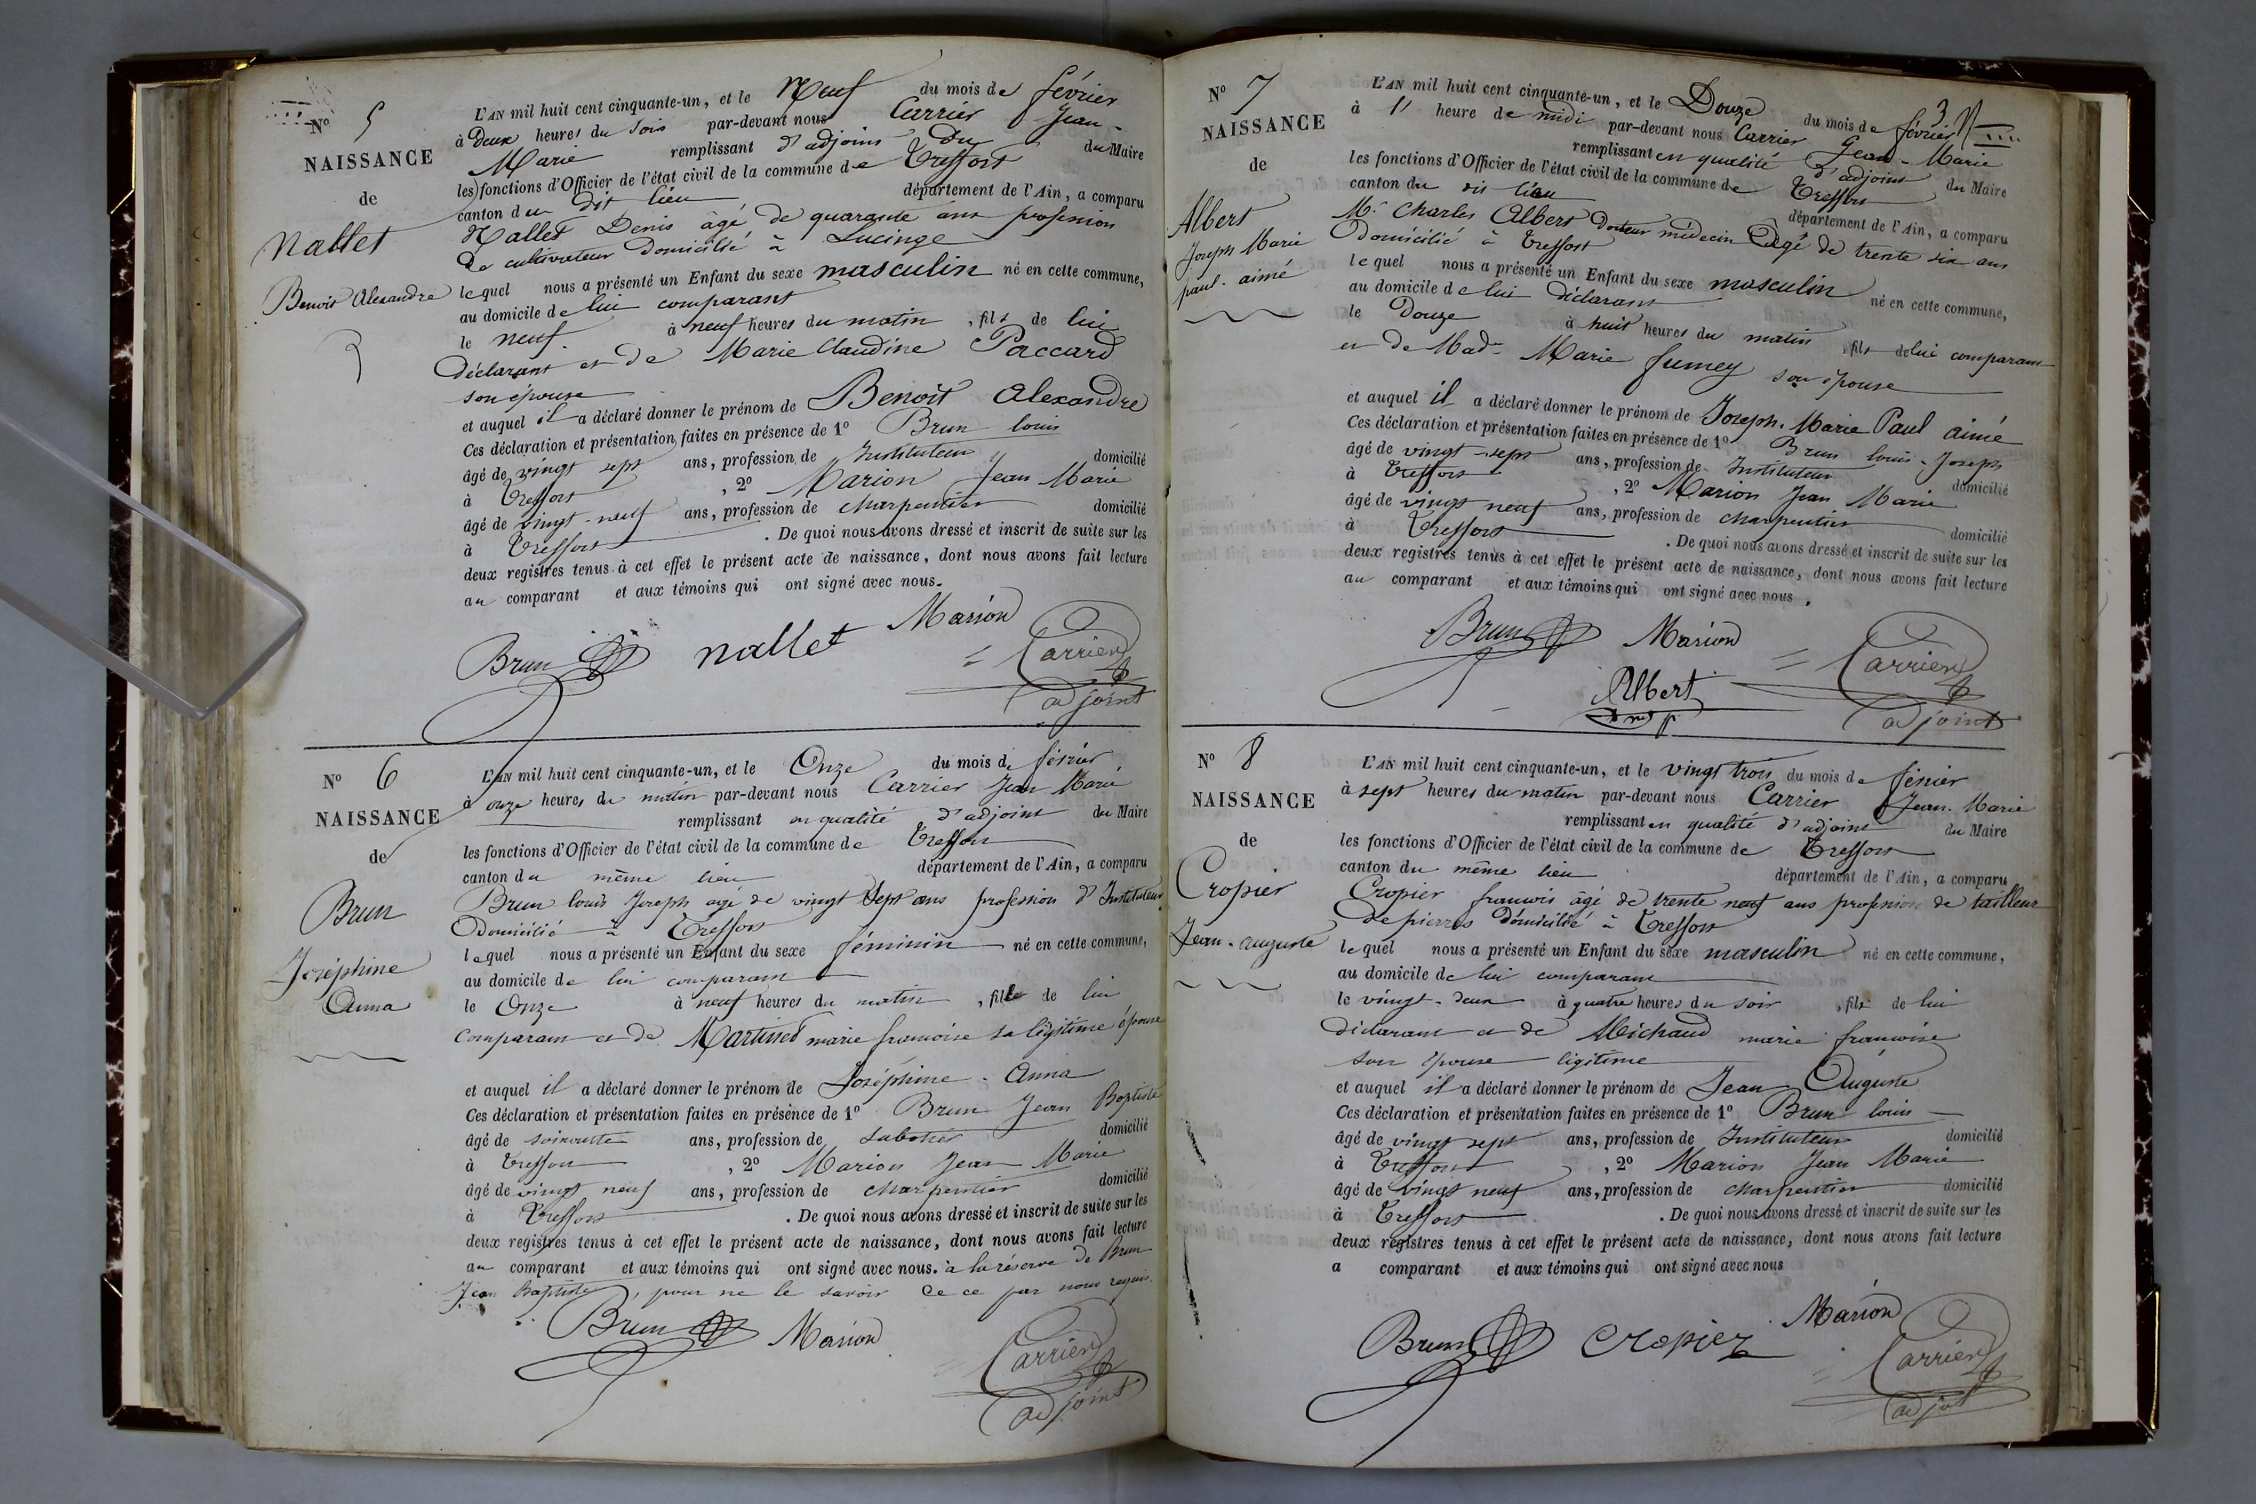 N° 5
NAISSANCE
de
Nallet
Benoit Alexandre
L'AN mil huit cent cinquante-un, et le Neuf du mois de février
à Deux heures du soir par-devant nous Carrier Jean-
Marie remplissant d'adjoint Du du Maire
les fonctions d'Officier de l'état civil de la commune de Treffort
canton du dit lieu département de l'Ain, a comparu
Nallet Denis âgé de quarante ans profession
de cultivateur domicilié à Lucinge
lequel nous a présenté un Enfant du sexe masculin né en cette commune,
au domicile de lui comparant
le neuf. à neuf heures du matin, fils de lui
déclarant et de Marie Claudine Paccard
son épouse
et auquel il a déclaré donner le prénom de Benoit Alexandre
Ces déclaration et présentation faites en présence de 1° Brun louis
âgé de vingt sept ans, profession de Instituteur domicilié
à Treffort, 2° Marion Jean Marie
âgé de vingt-neuf ans, profession de charpentier domicilié
à Treffort. De quoi nous avons dressé et inscrit de suite sur les
deux registres tenus à cet effet le présent acte de naissance, dont nous avons fait lecture
au comparant et aux témoins qui ont signé avec nous.
Brun nallet Marion Carrier
adjoint
N° 6
NAISSANCE
de
Brun
Joséphine
Anna
L'AN mil huit cent cinquante-un, et le Onze du mois de février
à onze heures du matin par-devant nous Carrier Jean Marie
remplissant en qualité d'adjoint du Maire
les fonctions d'Officier de l'état civil de la commune de Treffort
canton du même lieu département de l'Ain, a comparu
Brun louis Joseph âgé de vingt sept ans profession d'Instituteur
Domicilié à Treffort
lequel nous a présenté un Enfant du sexe féminin né en cette commune,
au domicile de lui comparant
le Onze à neuf heures du matin, fille de lui
comparant et de Martinet marie francoise sa légitime épouse
et auquel il a déclaré donner le prénom de Joséphine-Anna
Ces déclaration et présentation faites en présence de 1° Brun Jean Baptiste
âgé de soixante ans, profession de sabotier domicilié
à Treffort, 2° Marion Jean Marie
âgé de vingt neuf ans, profession de charpentier domicilié
à Treffort. De quoi nous avons dressé et inscrit de suite sur les
deux registres tenus à cet effet le présent acte de naissance, dont nous avons fait lecture
au comparant et aux témoins qui ont signé avec nous. à la réserve de Brun
Jean Baptiste, pour ne le savoir de ce par nous requis.
Brun Marion Carrier
adjoint
3
N° 7
NAISSANCE
de
Albert
Joseph Marie
paul-aimé
L'AN mil huit cent cinquante-un, et le Douze du mois de février
à 11 heure de midi par-devant nous Carrier Jean-Marie
remplissant en qualité d'adjoint du Maire
les fonctions d'Officier de l'état civil de la commune de Treffort
canton du dit lieu département de l'Ain, a comparu
Mr. Charles Albert docteur médecin âgé de trente six ans
Domicilié à Treffort
lequel nous a présenté un Enfant du sexe masculin né en cette commune,
au domicile de lui déclarant
le Douze à huit heures du matin, fils de lui comparant
et de Made. Marie fumey son épouse
et auquel il a déclaré donner le prénom de Joseph-Marie Paul aimé
Ces déclaration et présentation faites en présence de 1° Brun louis-Joseph
âgé de vingt-sept ans, profession de Instituteur domicilié
à Treffort, 2° Marion Jean Marie
âgé de vingt neuf ans, profession de charpentier domicilié
à Treffort. De quoi nous avons dressé et inscrit de suite sur les
deux registres tenus à cet effet le présent acte de naissance, dont nous avons fait lecture
au comparant et aux témoins qui ont signé avec nous.
Brun Marion Carrier
Albert adjoint
N° 8
NAISSANCE
de
Cropier
Jean-auguste
L'AN mil huit cent cinquante-un, et le vingt trois du mois de février
à sept heures du matin par-devant nous Carrier Jean-Marie
remplissant en qualité d'adjoint du Maire
les fonctions d'Officier de l'état civil de la commune de Treffort
canton du même lieu département de l'Ain, a comparu
Cropier francois âgé de trente neuf ans profession de tailleur
de pierres domicilié à Treffort
lequel nous a présenté un Enfant du sexe masculin né en cette commune,
au domicile de lui comparant
le vingt-deux à quatre heures du soir, fils de lui
déclarant et de Michaud marie francoise
son épouse légitime
et auquel il a déclaré donner le prénom de Jean Auguste
Ces déclaration et présentation faites en présence de 1° Brun louis
âgé de vingt sept ans, profession de Instituteur domicilié
à Treffort, 2° Marion Jean Marie
âgé de vingt neuf ans, profession de charpentier domicilié
à Treffort. De quoi nous avons dressé et inscrit de suite sur les
deux registres tenus à cet effet le présent acte de naissance, dont nous avons fait lecture
a comparant et aux témoins qui ont signé avec nous
Brun cropier Marion Carrier
adjoint